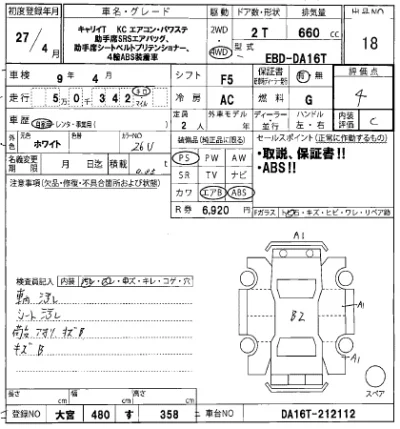 初度登録年月
車名・グレード
駆動
ドア数・形状
排気量
出品NO
27/4月
キャリイT KC エアコン・パワステ
助手席SRSエアバッグ、
助手席シートベルトプリテンショナー、
4輪ABS装着車
2WD・4WD
2 T
660 cc
18
型式
EBD-DA16T
車検 9年 4月
シフト F5
保証書 有・無
評価点
4
走行 5万0千342 キロ マイル
冷房 AC
燃料 G
車歴 自家用・レンタ・事業用( )
定員 2人
外車モデル年
ディーラー 並行
ハンドル 左・右
内装評価 C
外色 元色 ホワイト カラーNO 26U
装備品(純正品に限る)
セールスポイント(正常に作動するもの)
名義変更期限 月 日迄 積載
PS PW AW
SR TV ナビ
カワ エアB ABS
・取説、保証書!!
・ABS!!
注意事項(欠品・修復・不具合箇所および状態)
R券 6,920 円
Fガラス
キズ・ヒビ・ワレ・リペア跡
A1
検査員記入 内装
キレ・コゲ・穴
シート汚レ
キズB
B2
A1
A1
スペア
長さ cm 幅 cm 高さ cm
登録NO 大宮 480 す 358
車台NO DA16T-212112